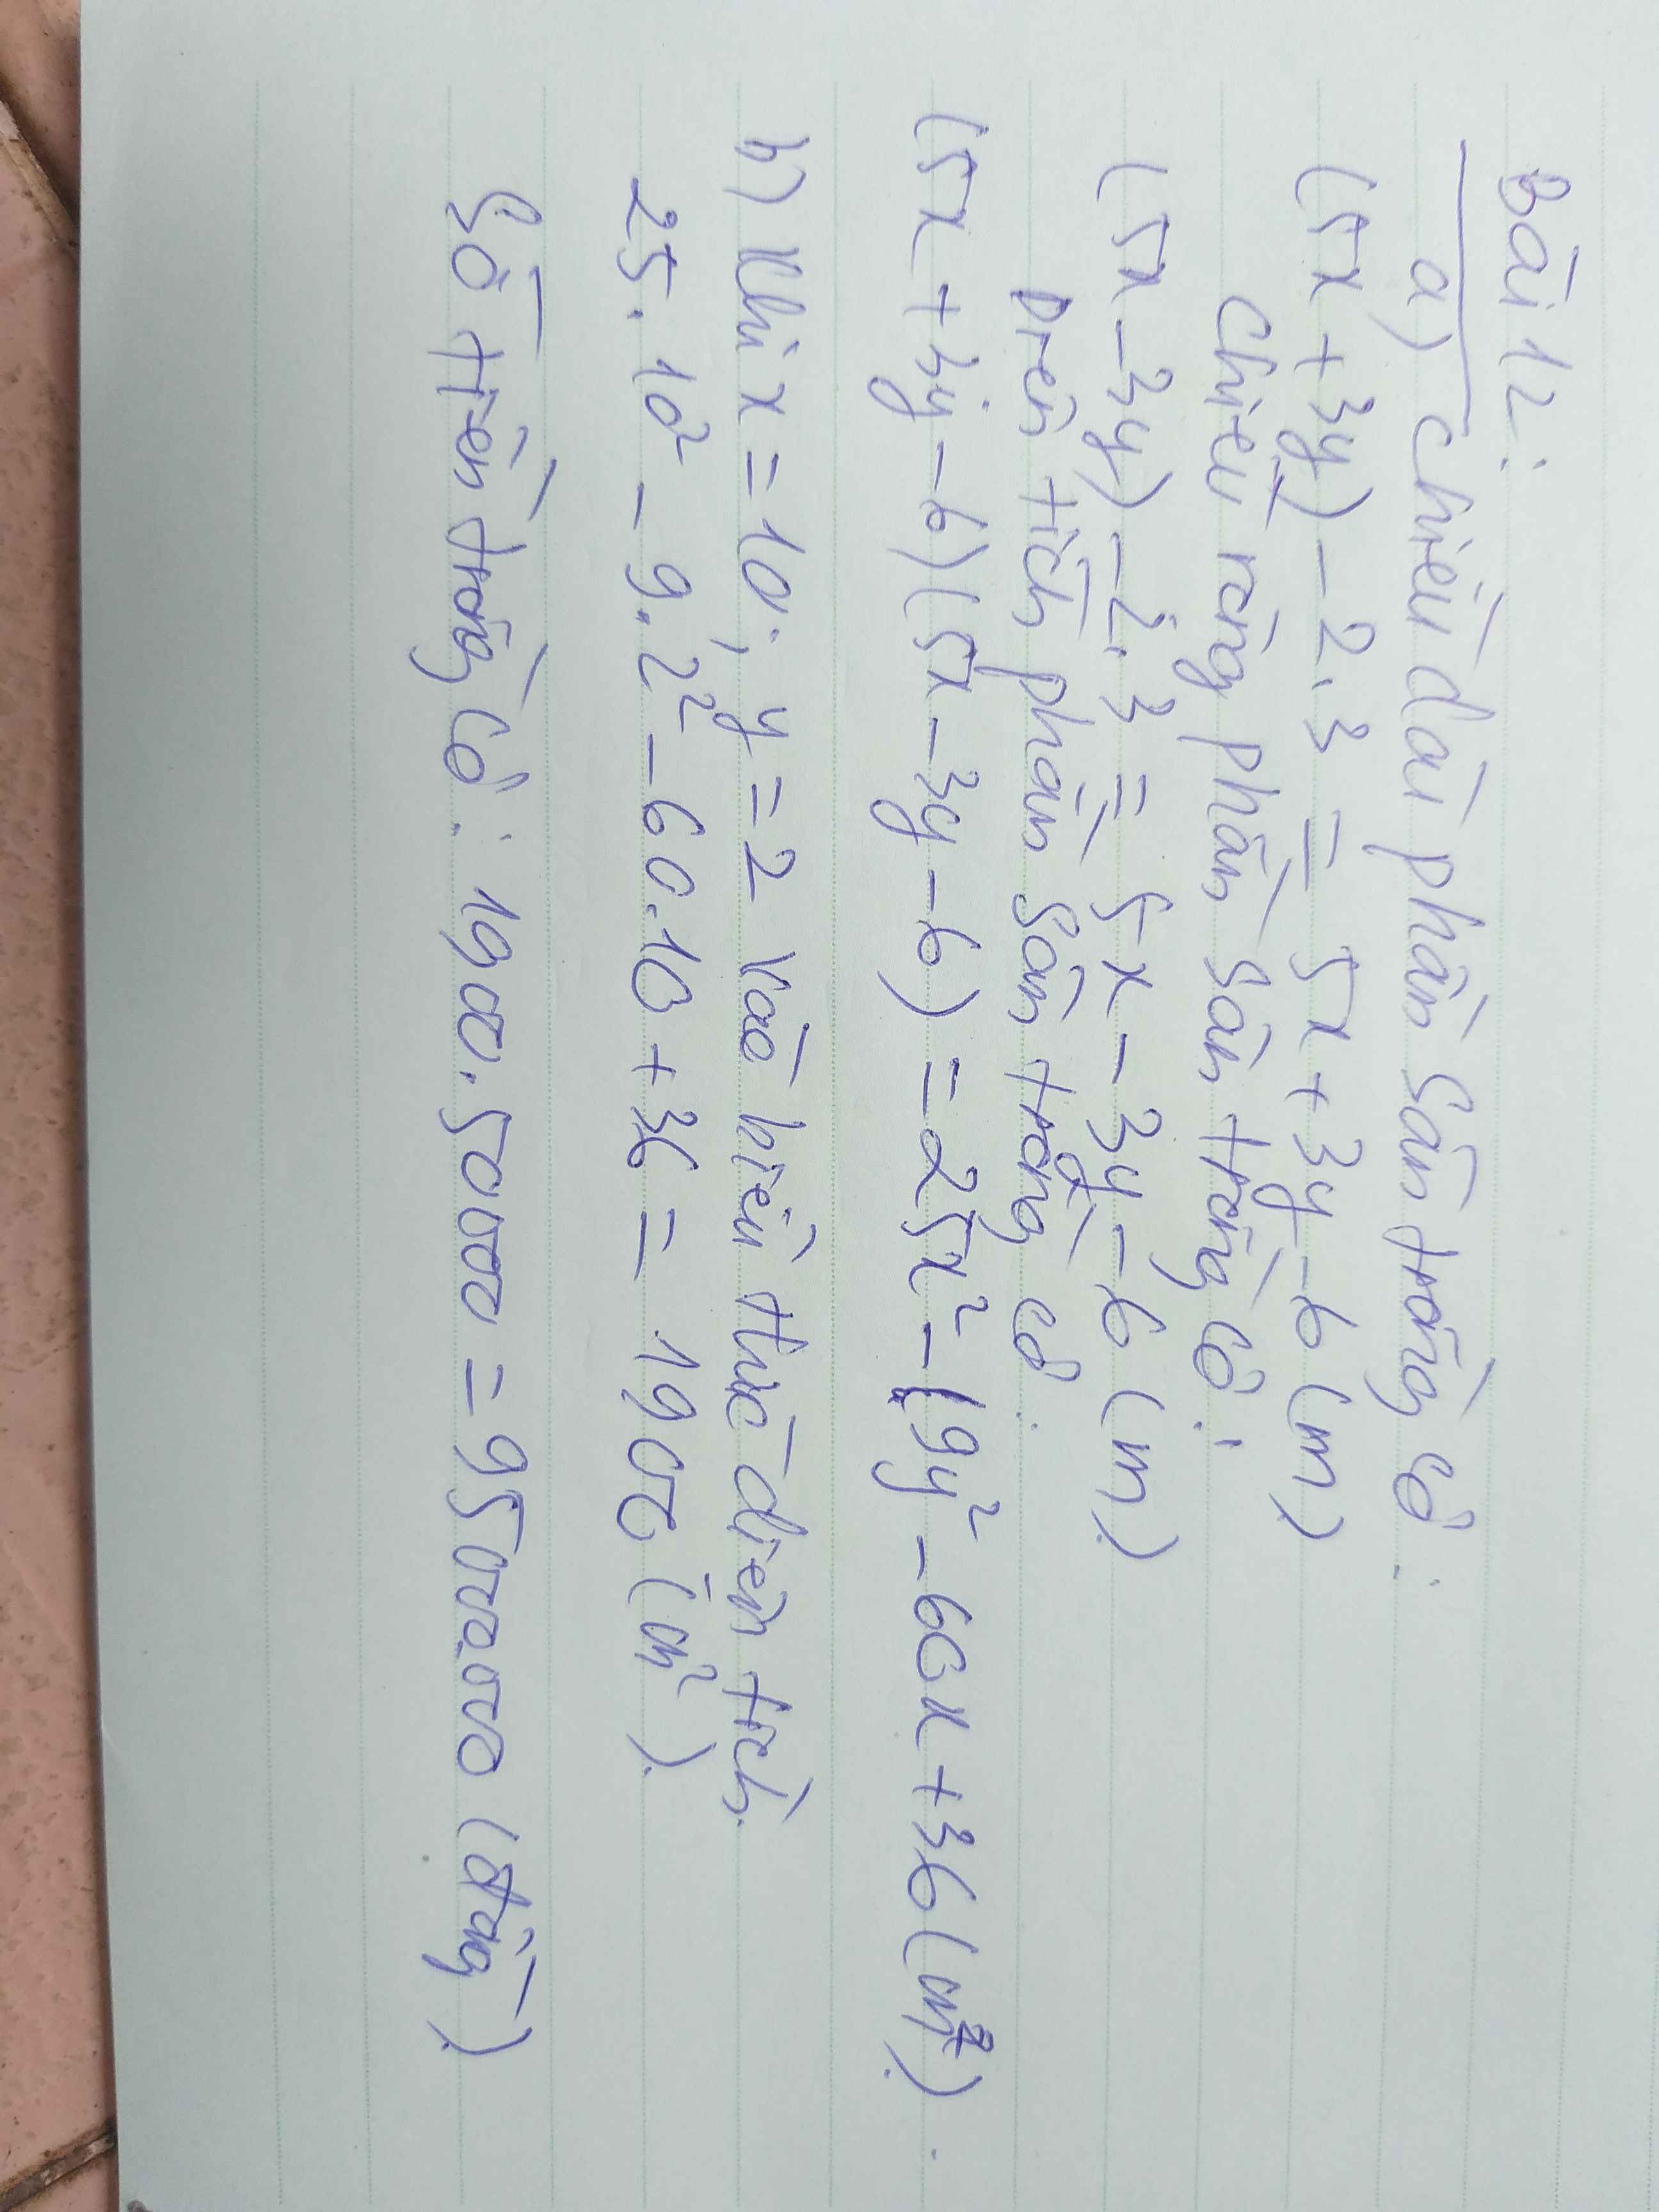 Bài 12:
a) chiều dài phần sân trồng cỏ:
(5x + 3y) - 2.3 = 5x + 3y - 6 (m)
chiều rộng phần sân trồng cỏ:
(5x - 3y) - 2.3 = 5x - 3y - 6 (m)
Diện tích phần sân trồng cỏ:
(5x + 3y - 6)(5x - 3y - 6) = 25x² - 9y² - 60x + 36 (m²).
b) Khi x = 10; y = 2 vào biểu thức diện tích.
25. 10² - 9. 2² - 60.10 + 36 = 1900 (m²).
Số tiền trồng cỏ: 1900. 50000 = 95000.000 (đồng)